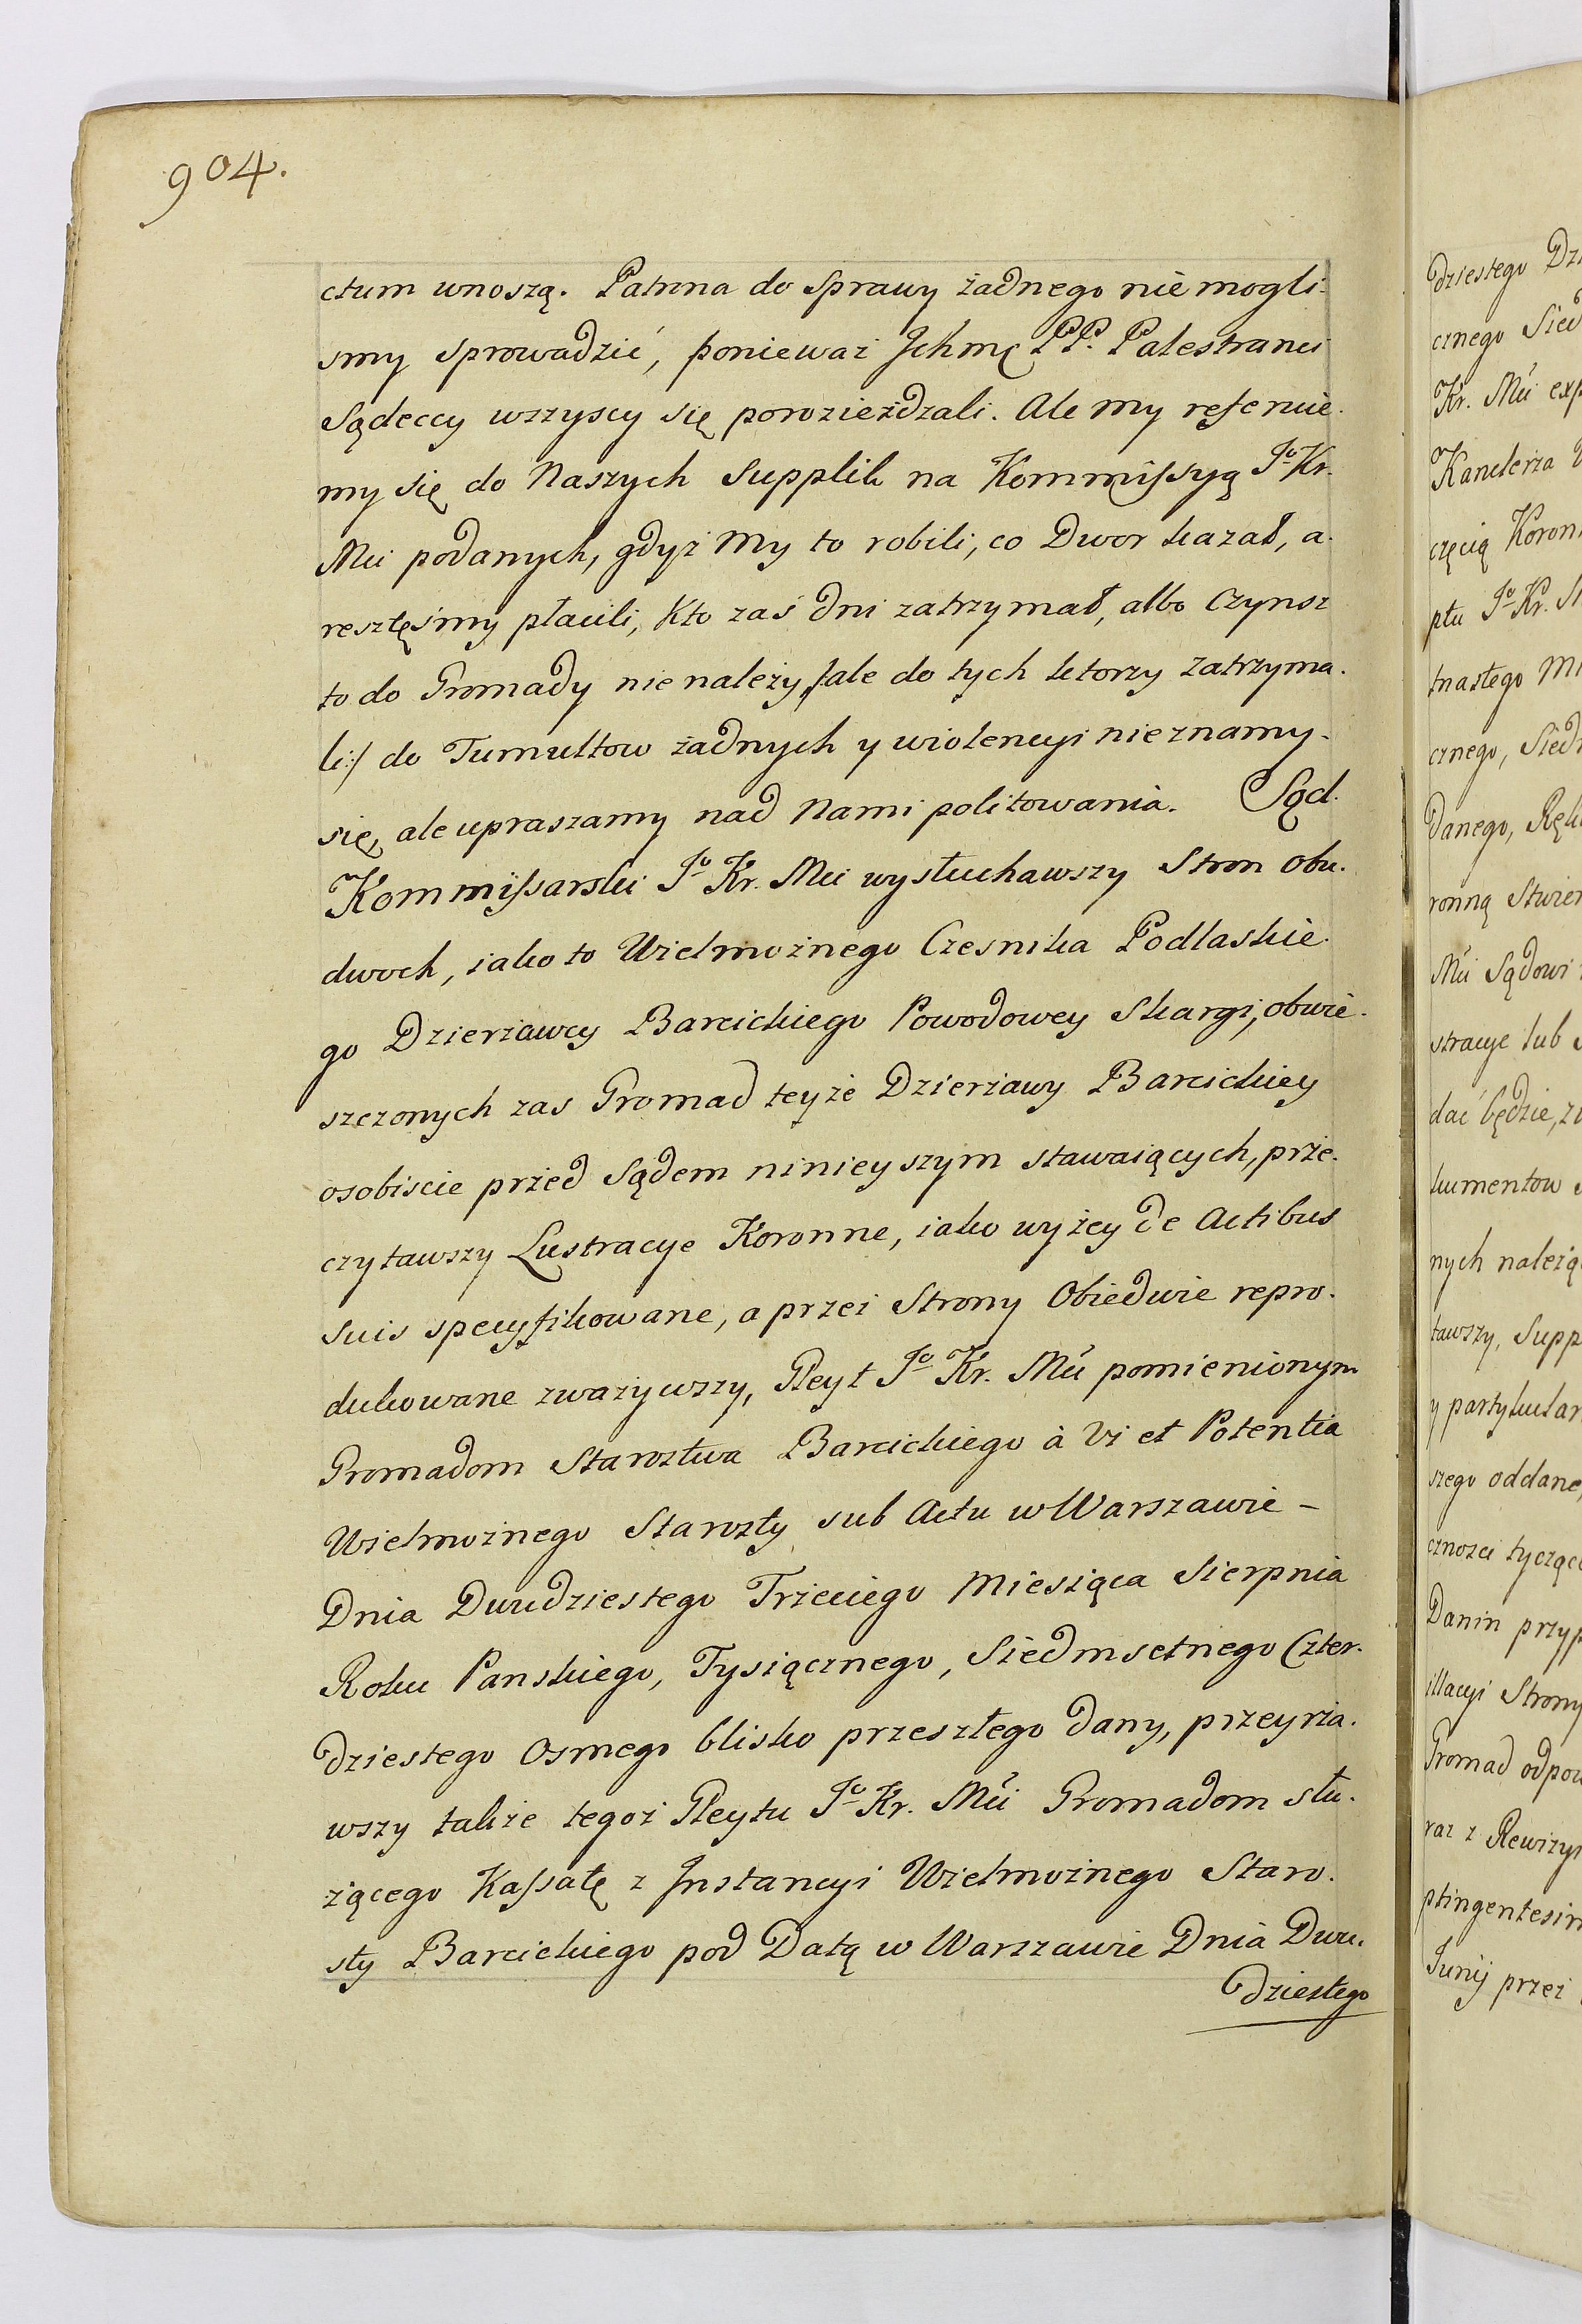 904.
ctum wnoszą. Patrona do sprawy żadnego nie mogli-
smy sprowadzić, ponieważ Jchmć PP. Palestranci
Sądeccy wszyscy się porozieżdzali. Ale my referuie-
my się do Naszych Supplik na Kommissyą Jº Kr.
Mci podanych, gdyż My to robili, co Dwor kazał, a
resztęsmy płacili, Kto zaś dni zatrzymał, albo Czynsz
to do Gromady nie należy /:ale do tych ktorzy zatrzyma-
li:/ do Tumultow żadnych y wiolencyi nieznamy-
się, ale upraszamy nad Nami politowania. Sąd
Kommissarski Jº Kr. Mci wysłuchawszy Stron obu-
dwoch, iako to Wielmożnego Czesnika Podlaskie-
go Dzierżawcy Barcickiego Powodowey Skargi, obwie-
szczonych zas Gromad teyże Dzierżawy Barcickiey
osobiscie przed Sądem ninieyszym stawaiących, prze-
czytawszy Lustracye Koronne, iako wyżey de Actibus
suis specyfikowane, a przez Strony Obiedwie repro-
dukowane zważywszy, Gleyt Jº Kr. Mci pomienionym
Gromadom Starostwa Barcickiego à Vi et Potentia
Wielmożnego Starosty sub Actu w Warszawie –
Dnia Dwudziestego Trzeciego Miesiąca Sierpnia
Roku Panskiego, Tysiącznego, Siedmsetnego Czter-
dziestego Osmego blisko przeszłego dany, przeyrza-
wszy także tegoż Gleytu Jº Kr. Mci Gromadom słu-
żącego Kassatę z Jnstancyi Wielmożnego Staro-
sty Barcickiego pod Datą w Warszawie Dnia Dwu-
dziestego
dziestego
cznego
Kr. Mci
Kanclerza
częcią
ptu Jº Kr.
tnastego
cznego,
danego,
ronną
Mci Sądowi
stracye lub
dać będzie,
kumentow
nych
tawszy,
y
szego oddane,
cznosci
Danin
illacyi Strony
Gromad
raz z
Junij przez